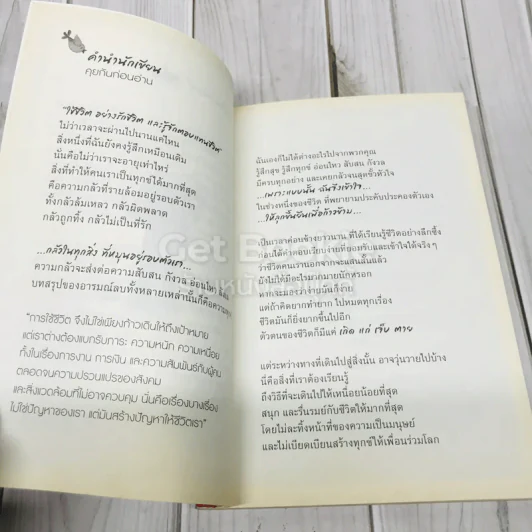 คำนำนักเขียน
คุยกันก่อนอ่าน
"ใช้ชีวิต อย่างรักชีวิต และรู้จักตอบแทนชีวิต"
ไม่ว่าเวลาจะผ่านไปนานแค่ไหน
สิ่งหนึ่งที่ฉันยังคงรู้สึกเหมือนเดิม
นั่นคือไม่ว่าเราจะอายุเท่าไหร่
สิ่งที่ทำให้คนเราเป็นทุกข์ได้มากที่สุด
คือความกลัวที่รายล้อมอยู่รอบตัวเรา
ทั้งกลัวล้มเหลว กลัวผิดพลาด
กลัวถูกทิ้ง กลัวไม่เป็นที่รัก
...กลัวในทุกสิ่ง ที่หมุนอยู่รอบตัวเรา...
ความกลัวจะส่งต่อความสับสน กังวล อ่อนไหว
บทสรุปของอารมณ์ลบทั้งหลายเหล่านั้นก็คือความทุกข์
"การใช้ชีวิต จึงไม่ใช่เพียงก้าวเดินให้ถึงเป้าหมาย
แต่เราต่างต้องแบกรับภาระ ความหนัก ความเหนื่อย
ทั้งในเรื่องการงาน การเงิน และความสัมพันธ์กับผู้คน
ตลอดจนความปรวนแปรของสังคม
และสิ่งแวดล้อมที่ไม่อาจควบคุม นั่นคือเรื่องบางเรื่อง
ไม่ใช่ปัญหาของเรา แต่มันสร้างปัญหาให้ชีวิตเรา"
ฉันเองก็ไม่ได้ต่างอะไรไปจากพวกคุณ
รู้สึกสุข รู้สึกทุกข์ อ่อนไหว สับสน กังวล
มีครบทุกอย่าง และเคยกลัวจนสุดขั้วหัวใจ
...เพราะแบบนั้น ฉันจึงเข้าใจ...
ในช่วงหนึ่งของชีวิต ที่พยายามประคับประคองตัวเอง
...ให้ลุกขึ้นยืนเพื่อก้าวข้าม...
เป็นเวลาค่อนข้างยาวนาน ที่ได้เรียนรู้ชีวิตอย่างลึกซึ้ง
ก่อนได้คำตอบเรียบง่ายที่ยอมรับและเข้าใจได้จริงๆ
ว่าชีวิตคนเรานอกจากจะแสนสั้นแล้ว
มันไม่ได้มีอะไรมากมายนักหรอก
หากจะมองว่าง่ายมันก็ง่าย
แต่ถ้าคิดยากทำยาก ไปหมดทุกเรื่อง
ชีวิตมันก็ยิ่งยากขึ้นไปอีก
ตัวตนของชีวิตก็มีแค่ เกิด แก่ เจ็บ ตาย
แต่ระหว่างทางที่เดินไปสู่สิ่งนั้น อาจวุ่นวายไปบ้าง
นี่คือสิ่งที่เราต้องเรียนรู้
ถึงวิธีที่จะเดินไปให้เหนื่อยน้อยที่สุด
สนุก และรื่นรมย์กับชีวิตให้มากที่สุด
โดยไม่ละทิ้งหน้าที่ของความเป็นมนุษย์
และไม่เบียดเบียนสร้างทุกข์ให้เพื่อนร่วมโลก